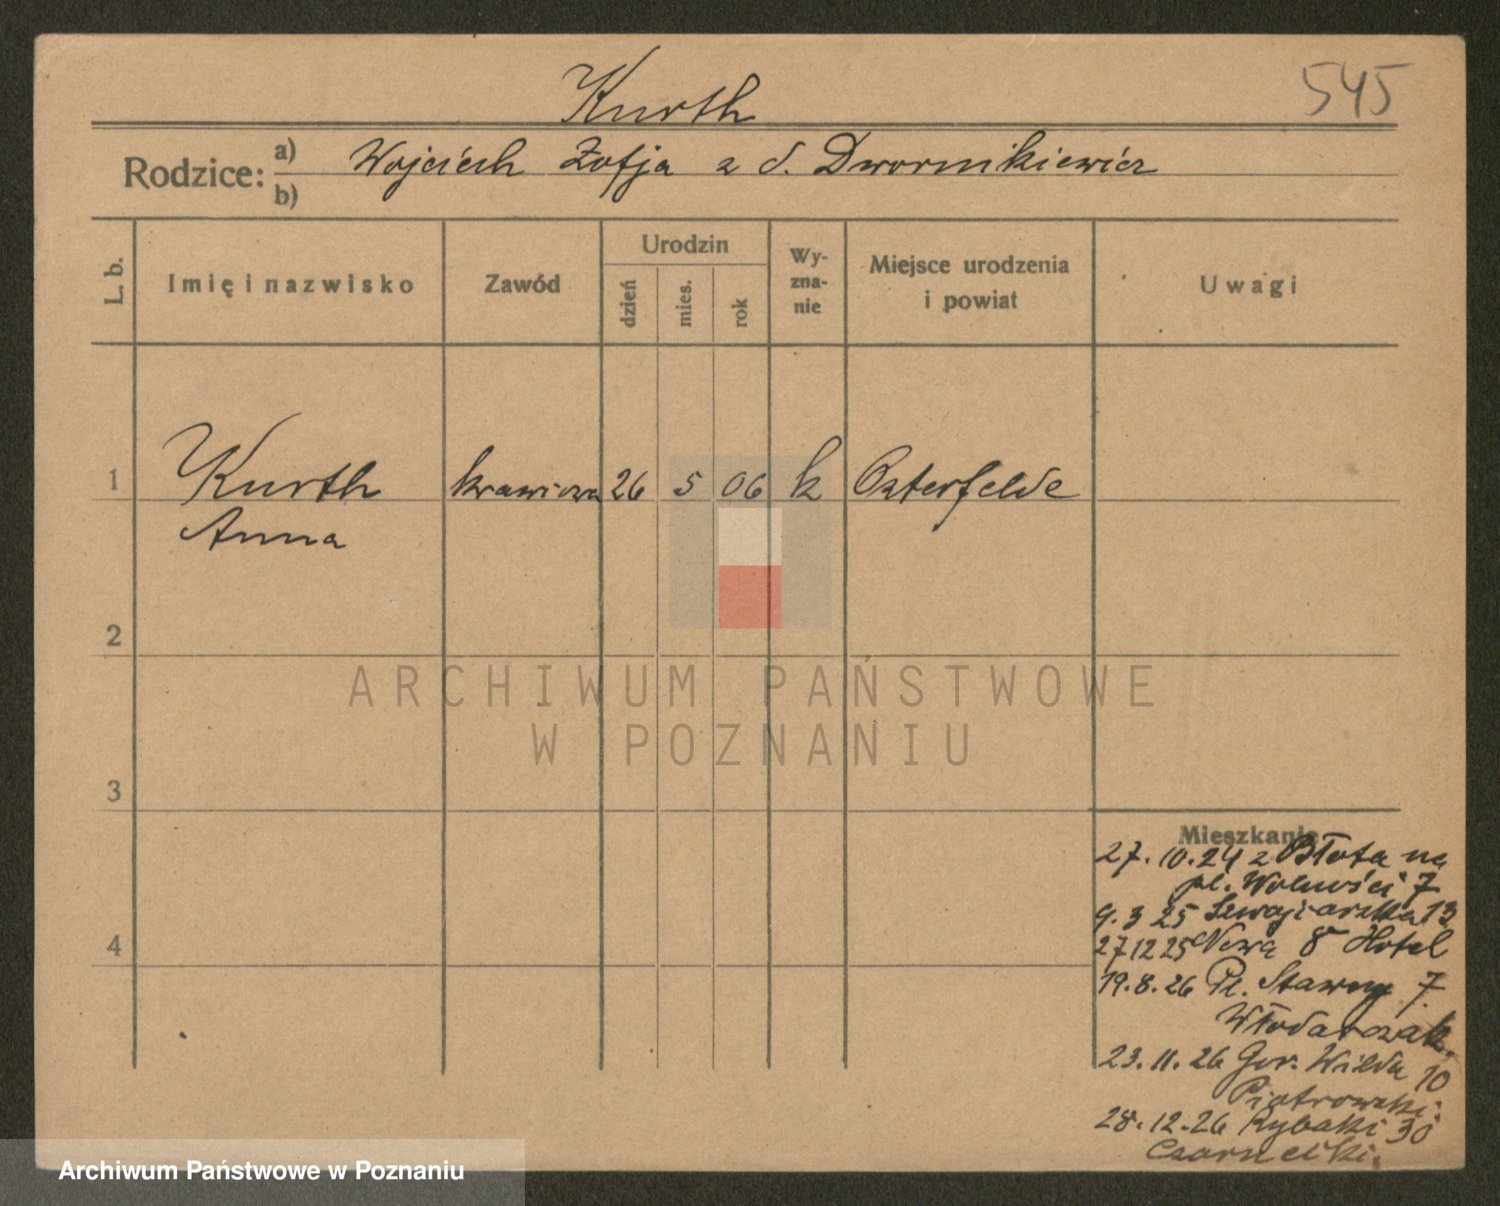 Kurth
545
Rodzice: a) Wojciech Zofja z d. Dwornikiewicz
b)
L. b.
Imię i nazwisko
Zawód
Urodzin
dzień
mies.
rok
Wy-
zna-
nie
Miejsce urodzenia
i powiat
Uwagi
1 Kurth krawcowa 26 5 06 k Osterfelde
Anna
2
3
4
ARCHIWUM PAŃSTWOWE
W POZNANIU
Mieszkanie
27.10.24 z Błota na
pl. Wolności 7
9.3 25 Szwajcarska 13
27 12 25 Nowa 8 Hotel
19.8.26 Pl. Stawny 7
Włodarczak.
23.11.26 Gór. Wilda 10
Piotrowski.
28.12.26 Rybaki 30
Czarnecki.
Archiwum Państwowe w Poznaniu